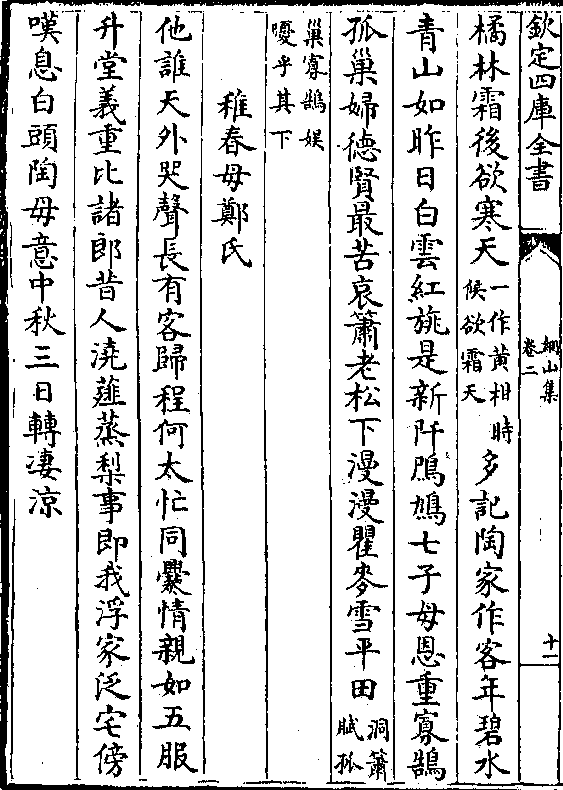 欽定四庫全書
網山集
卷二
十一
橘林霜後欲寒天一作黄柑時候欲霜天多記陶家作客年碧水
青山如昨日白雲紅旐是新阡鳲鳩七子母恩重寡鵠
孤巢婦德賢最苦哀簫老松下漫漫瞿麥雪平田洞簫賦孤
巢寡鵠娱嚘乎其下
稚春母鄭氏
他誰天外哭聲長有客歸程何太忙同爨情親如五服
升堂義重比諸郎昔人澆薤蒸梨事即我浮家泛宅傍
嘆息白頭陶母意中秋三日轉凄涼